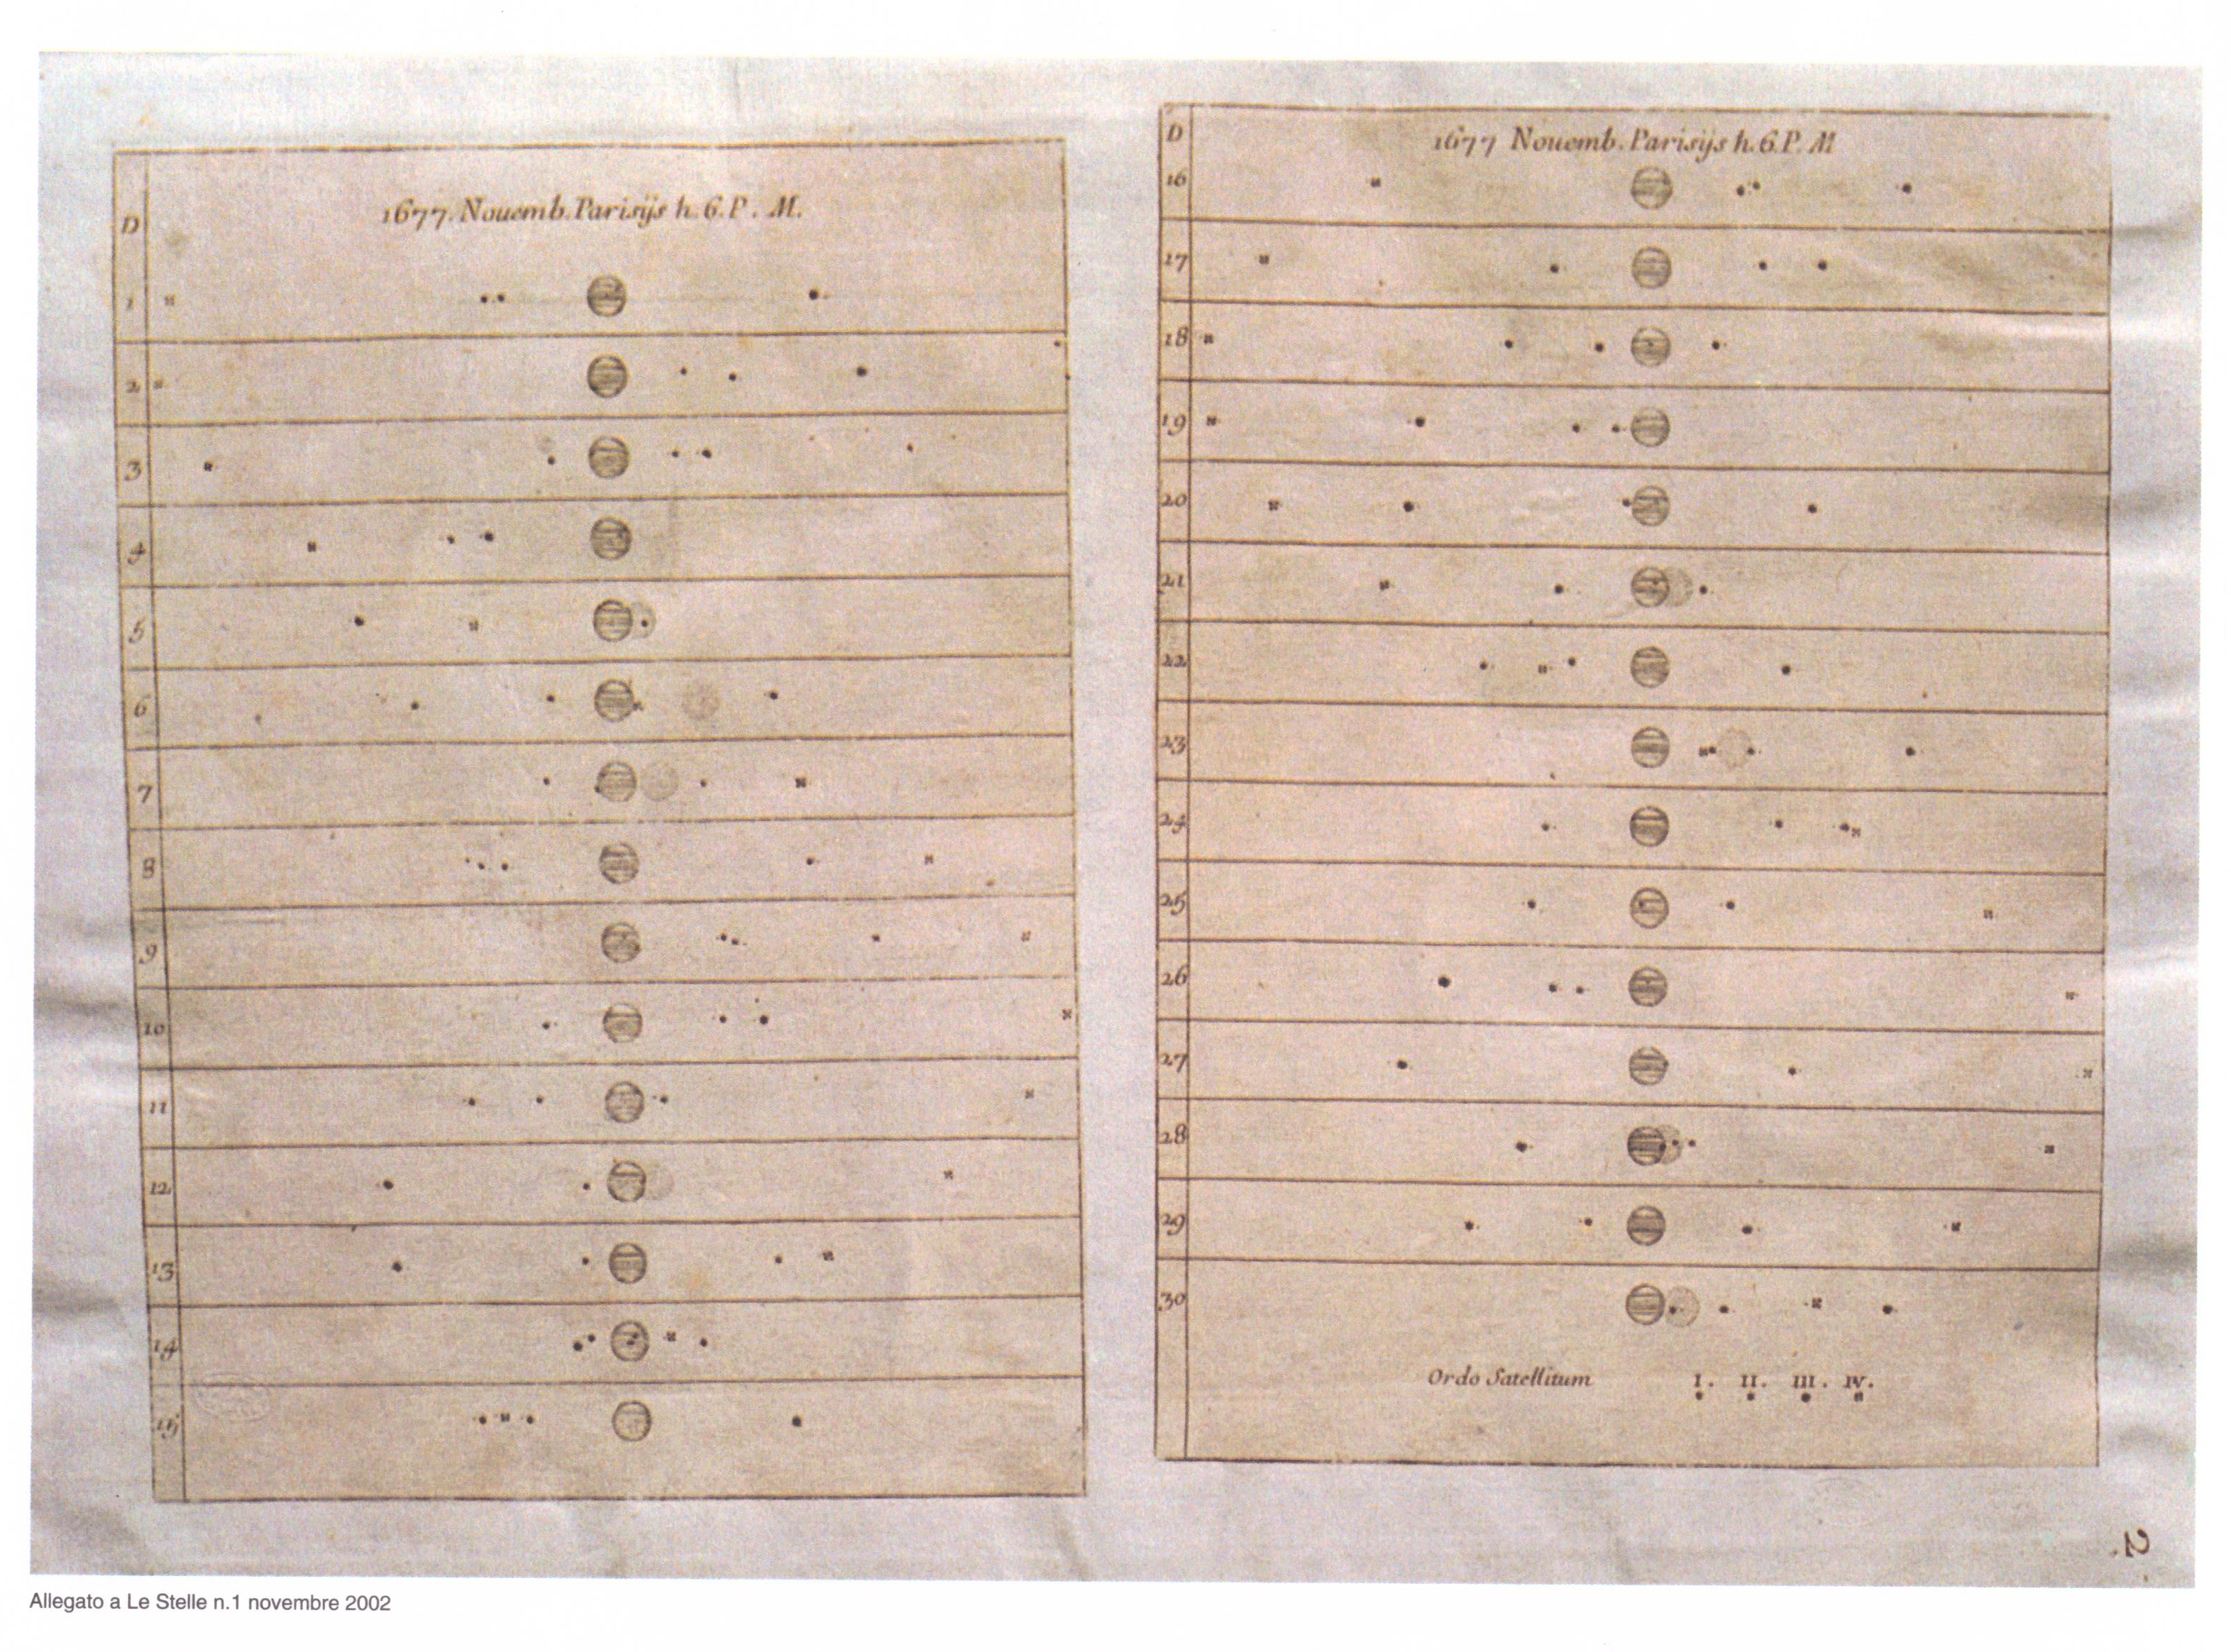 D
1677. Nouemb. Parisijs h. 6. P. M.
1
2
3
4
5
6
7
8
9
10
11
12
13
14
15
D
1677 Nouemb. Parisijs h. 6. P. M
16
17
18
19
20
21
22
23
24
25
26
27
28
29
30
Ordo Satellitum I. II. III. IV.
2
Allegato a Le Stelle n.1 novembre 2002